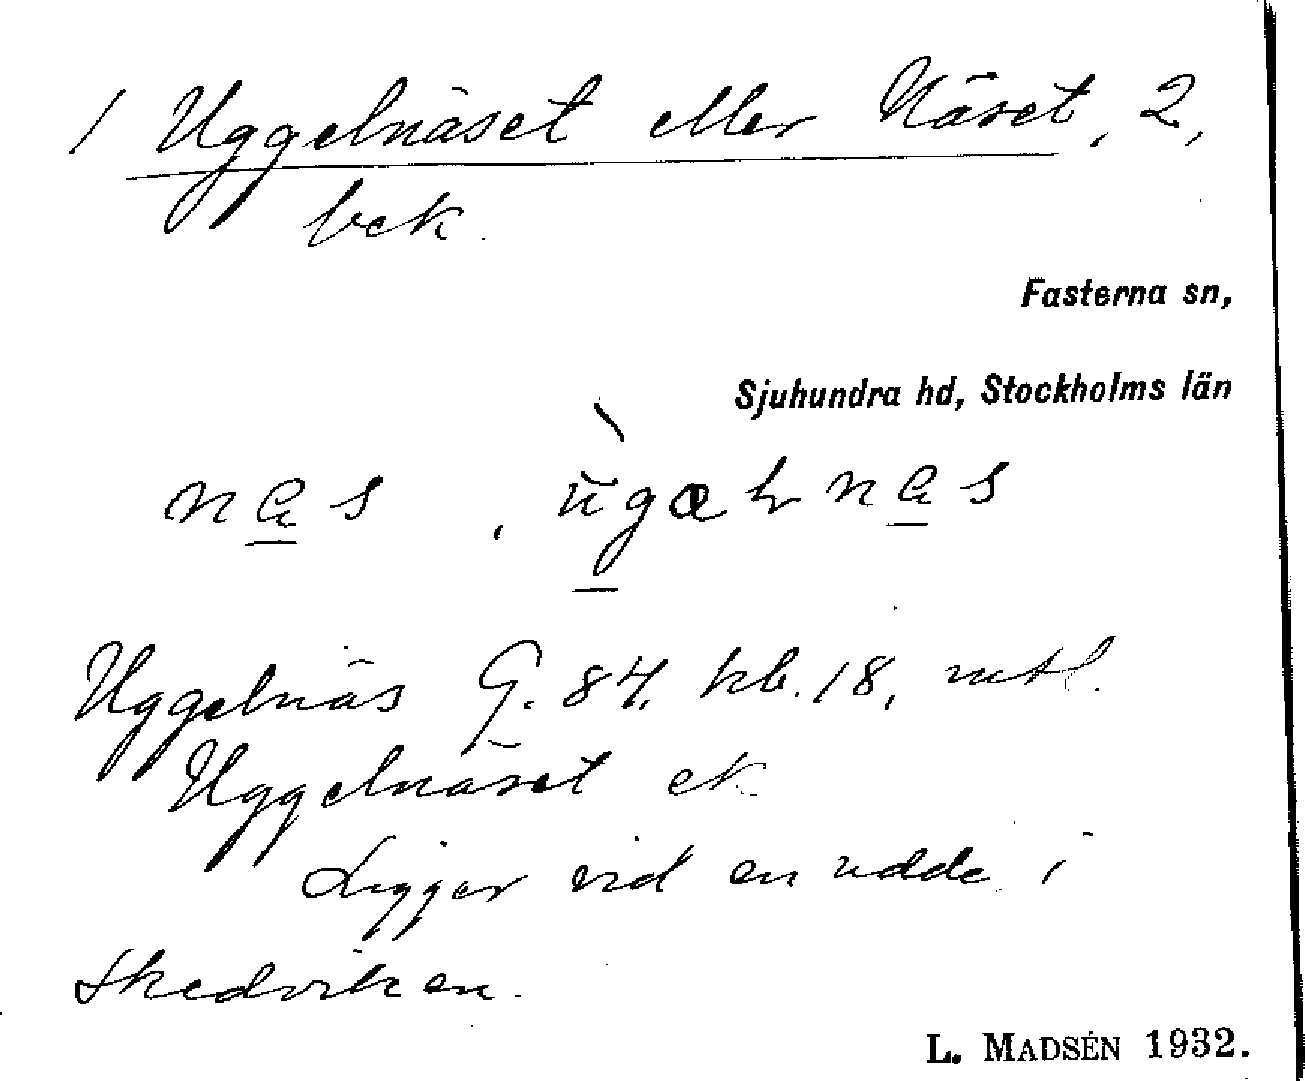 1 Uggelnäset eller Näset, 2,
bek.
Fasterna sn,
Sjuhundra hd, Stockholms län
Uggelnäs G. 84, kb. 18, mtl.
Uggelnäset ek.
Ligger vid en udde i
Skedviken.
L. MADSÉN 1932.